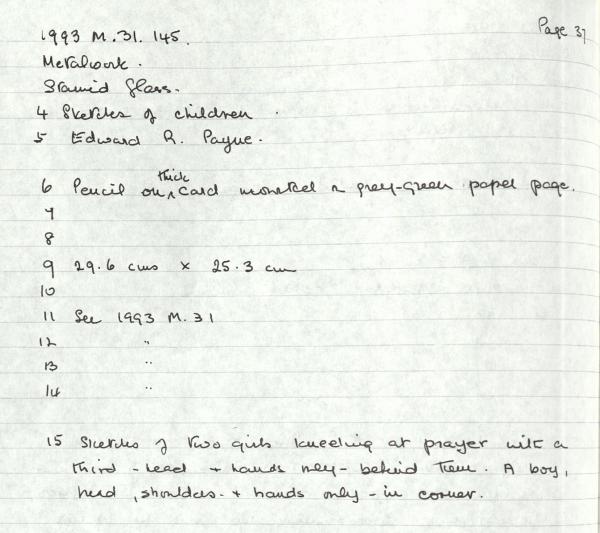 Page 37
1993 M.31.145.
Metalwork.
Stained Glass.
4 Sketches of children.
5 Edward R. Payne.
6 Pencil on thick card mounted on grey-green paper page.
7
8
9 29.6 cms x 25.3 cm
10
11 See 1993 M.31
12 "
13 "
14 "
15 Sketches of two girls kneeling at prayer with a
third - head + hands only - behind them. A boy,
head, shoulders. + hands only - in corner.